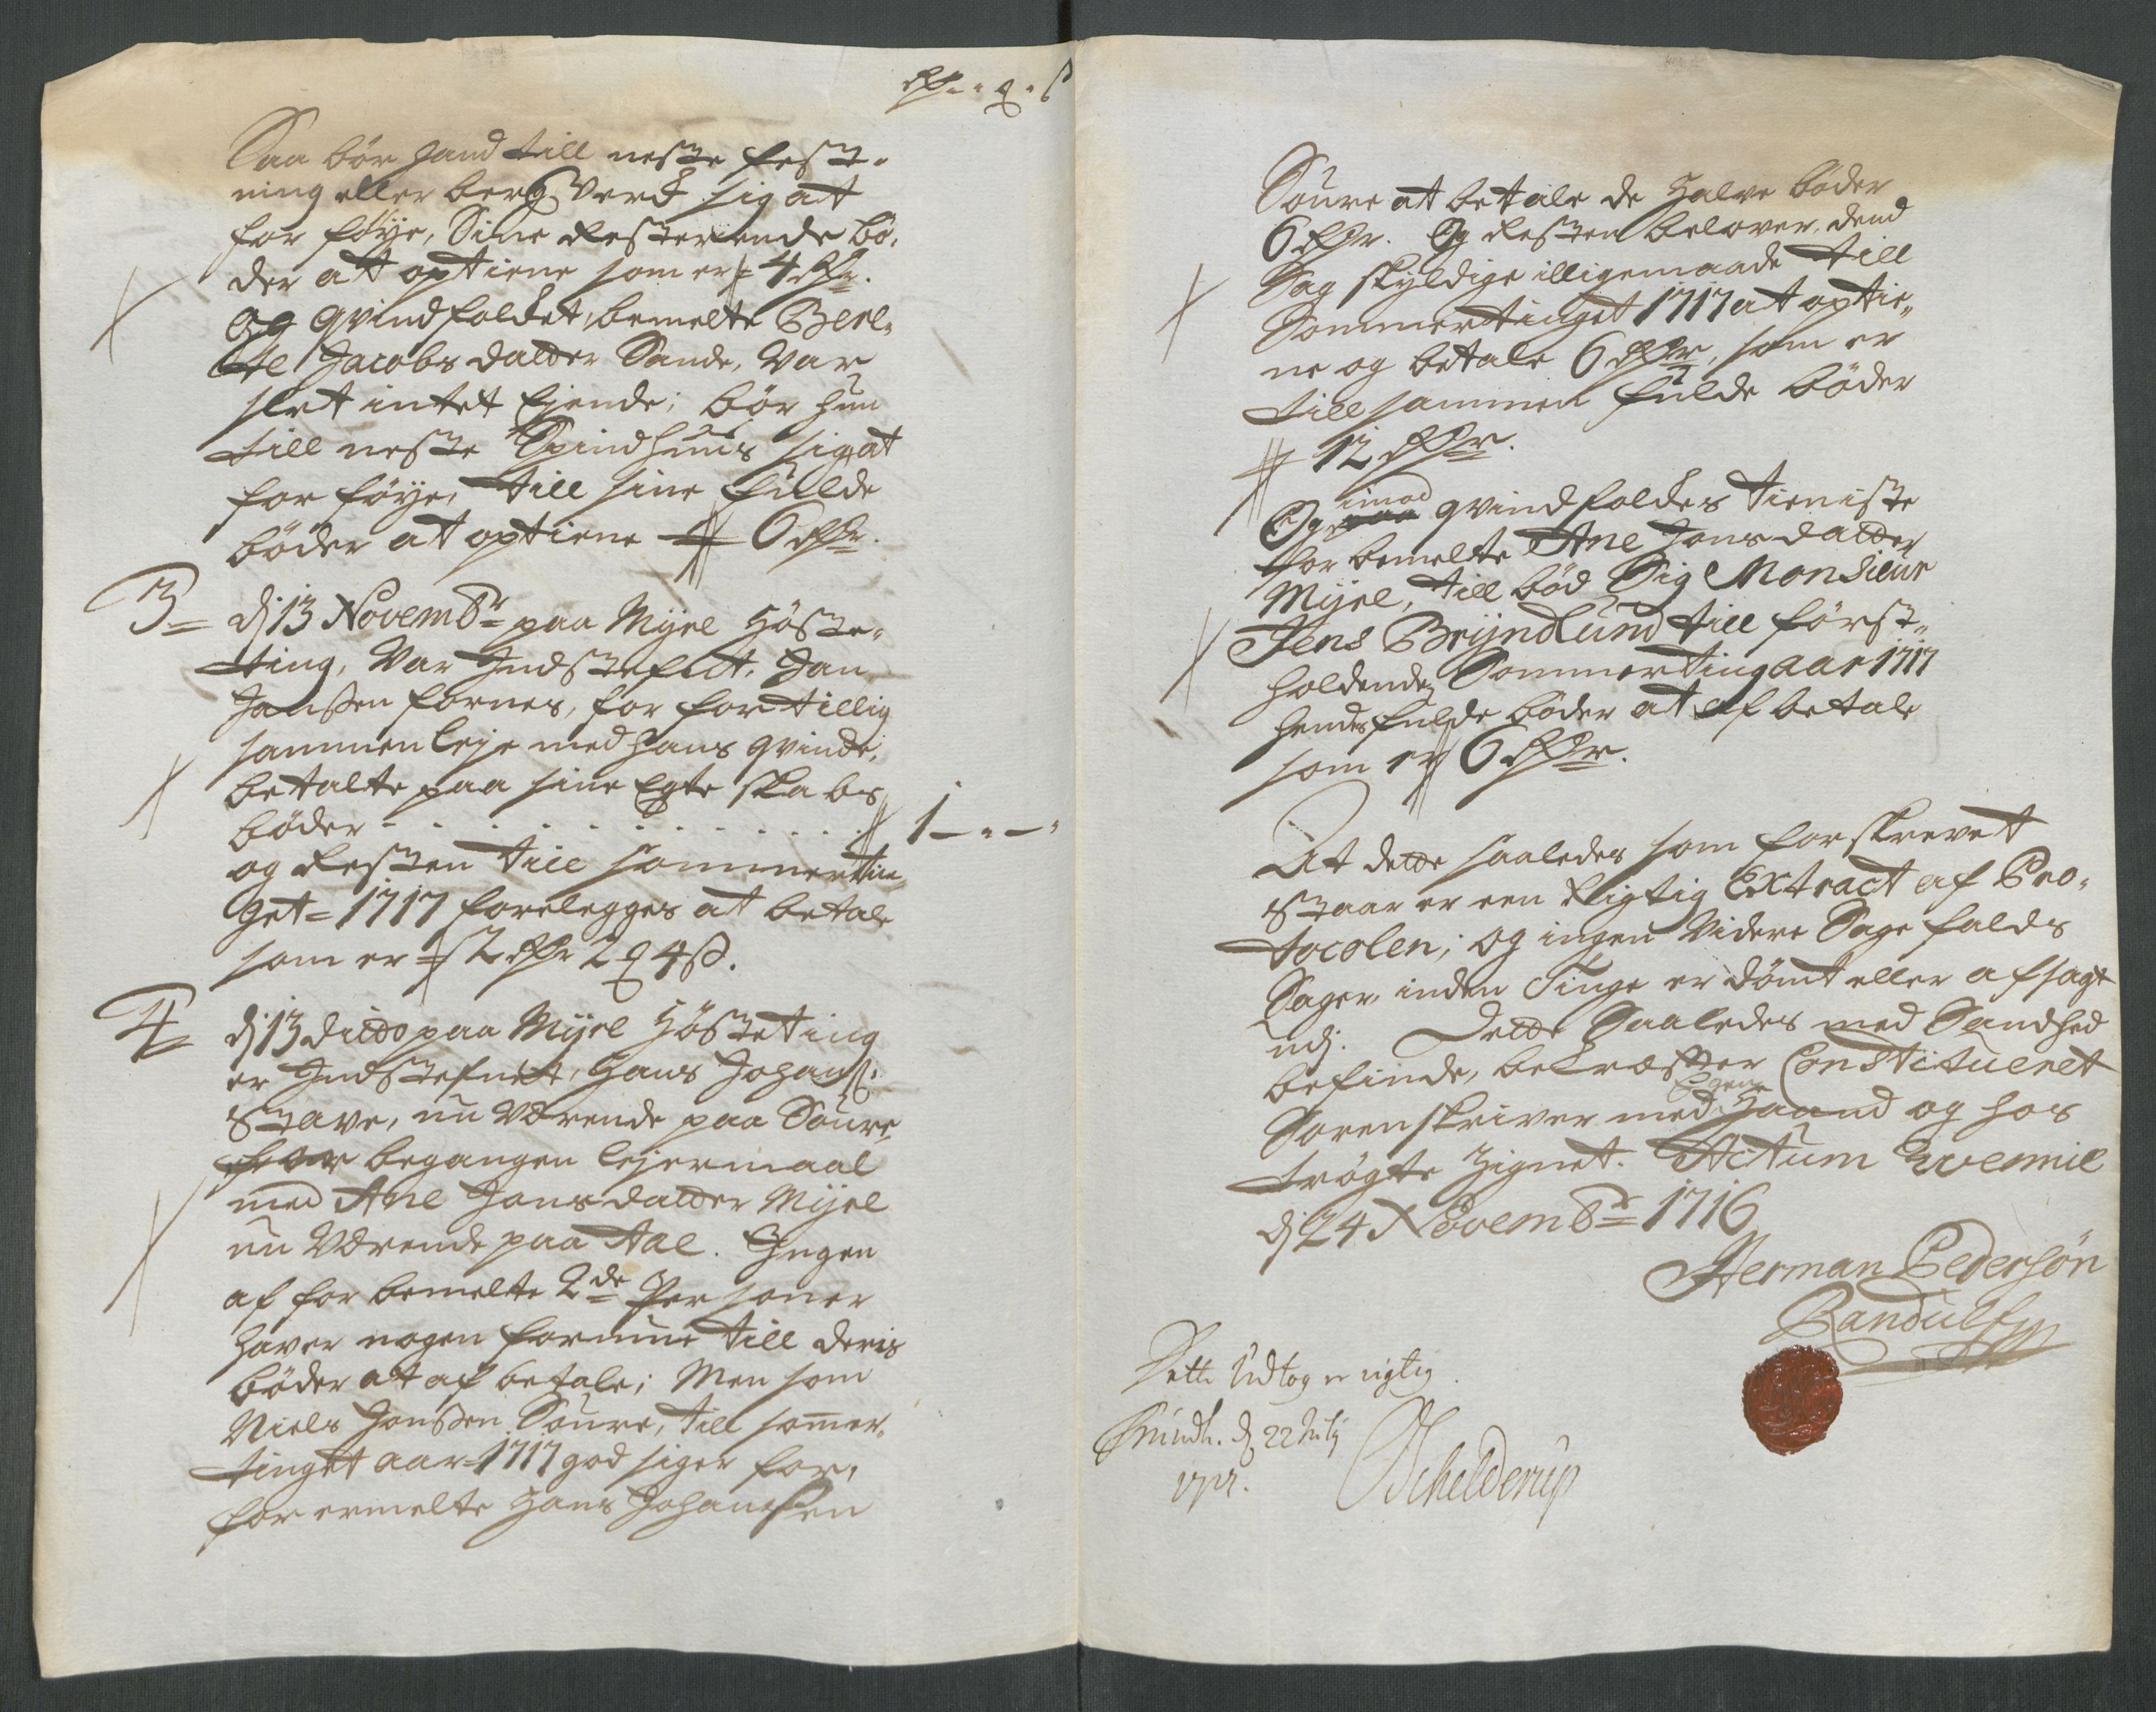 Rdr. q. s
Saa bør hand till neste fest-
ning eller bergverk sig at
for føye, Sine Resterende bø-
der at optiene som er 4 Rdr.
Og qvindfolket, bemelte Berel-
te Jacobsdatter Sande, var
slet intet Ejende; bør hun
till neste Spindhuus sig at
for føye, till sine fulde
bøder at optiene 6 Rdr.
3 dj 13 Novembr paa Myel Høste-
ting, var Indstefnt, Jan
Janssen fornes, for for tillig
sammenleje med hans qvinde,
betalte paa sine Egteskabs
bøder . . . . . . . . . . . . 1 - " - "
og Resten till sommerTin-
get 1717 forelegges at betale
som er 2 Rdr 2 q 4 s.
4 dj 13 dicto paa Myel Høsteting
er Indstefnet, Hans Johans:
Stave, nu værende paa Soure,
for begangen lejermaal
med Ane Jonsdatter Myel
nu værende paa Aae. Ingen
af for bemelte 2de Personer
haver nogen formue till deris
bøder at af betale; Men som
Niels Jonssen Soure, till somer-
tinget aar 1717 god siger for,
for ermelte Hans Johanssen
Soure at betale de Halve bøder
6 Rdr. Og Resten belover, dend
Sag skyldige illigemaade till
Sommertinget 1717 at optie-
ne og betale 6 Rdr, som er
till sammen fulde bøder
12 Rdr.
Og imod qvindfolkes tieniste
for bemelte Ane Jonsdatter
Myel, till bød Sig Monsieur
Jens Bryndlund till først-
holdende Sommerting aar 1717
hendes fulde bøder at af betale
som er 6 Rdr.
At dette saaledes som forskrevet
staar er een Rigtig Extract af Pro-
tocolen; og ingen videre Sagefalds
Sager inden Tinge er dømt eller afsagt
udj. Dette Saaledes med Sandhed
befinde, bekræfter Constitueret
Sorenskriver med Egen Haand og hos
trøgte Zignet. Actum Qvennie
dj 24 Novembr 1716
Herman Pedersøn
Randulf
Dette Udtog er rigtig
Trundh. d 22 July
1717. Schelderup